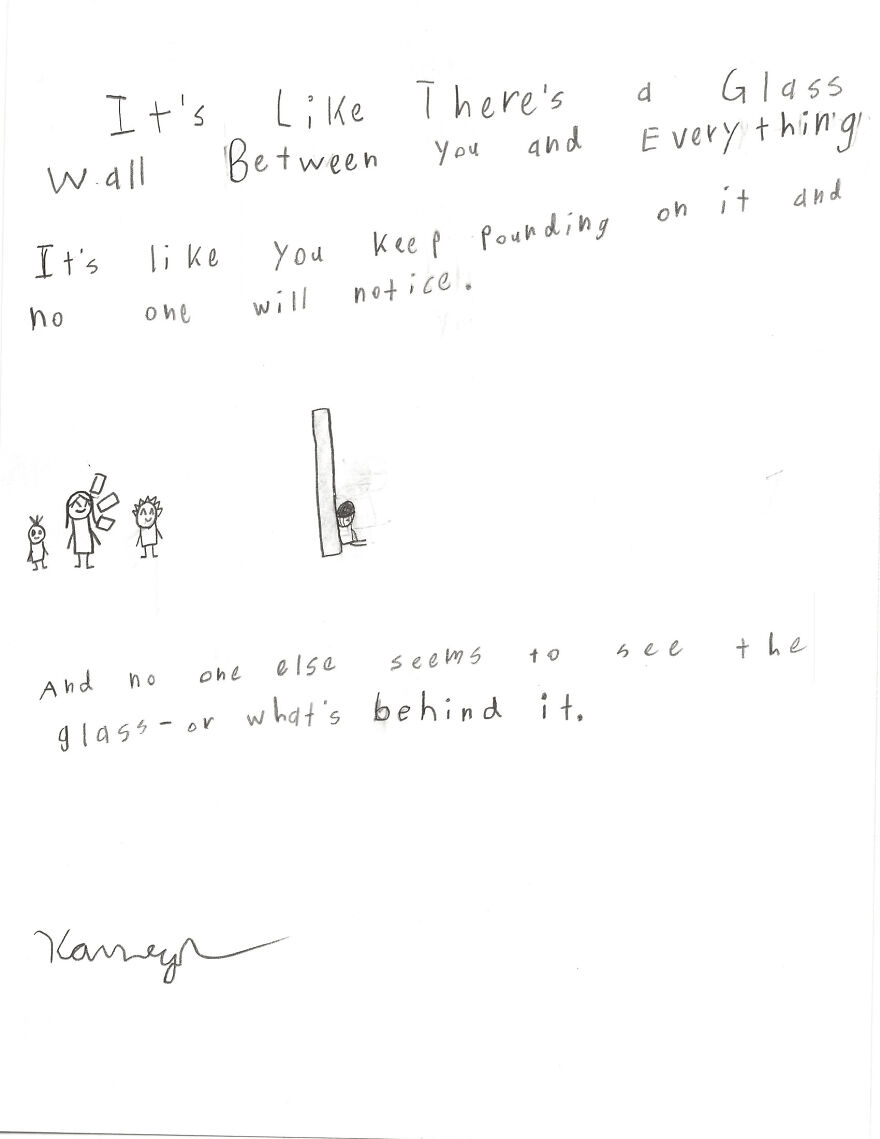 It's Like There's a Glass
Wall Between you and Everything
It's like you keep pounding on it and
no one will notice.
And no one else seems to see the
glass - or what's behind it.